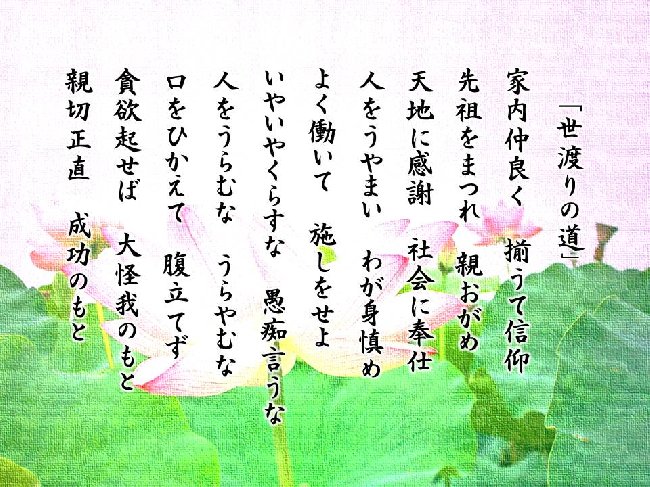 「世渡りの道」
家内仲良く 揃うて信仰
先祖をまつれ 親おがめ
天地に感謝 社会に奉仕
人をうやまい わが身慎め
よく働いて 施しをせよ
いやいやくらすな 愚痴言うな
人をうらむな うらやむな
口をひかえて 腹立てず
貪欲起せば 大怪我のもと
親切正直 成功のもと